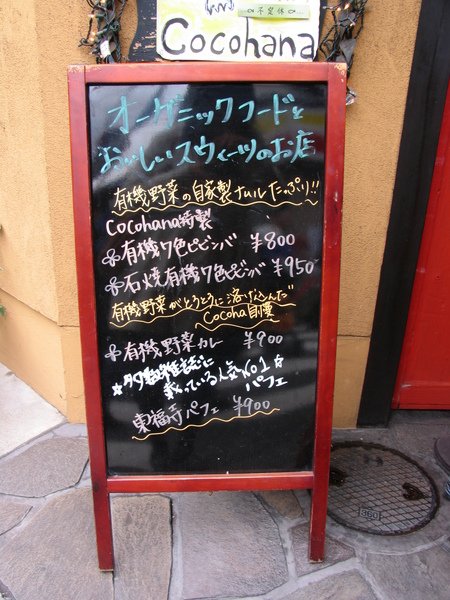 不定休
Cocohana
オーガニックフードと
おいしいスウィーツのお店
有機野菜の自家製ナムルたっぷり!!
Cocohana特製
有機7色ビビンバ ¥800
石焼有機7色ビビンバ ¥950
有機野菜がとろとろに溶け込んだ
Cocoha自慢
有機野菜カレー ¥900
載っている人気No1☆
パフェ
東福寺パフェ ¥900
360